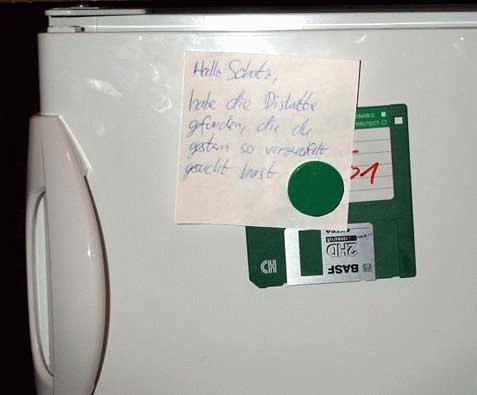 Hallo Schatz,
habe die Diskette
gefunden, die du
gestern so verzweifelt
gesucht hast
ENABLE
PROTECT
1
EXTRA
2HD
BASF
HD